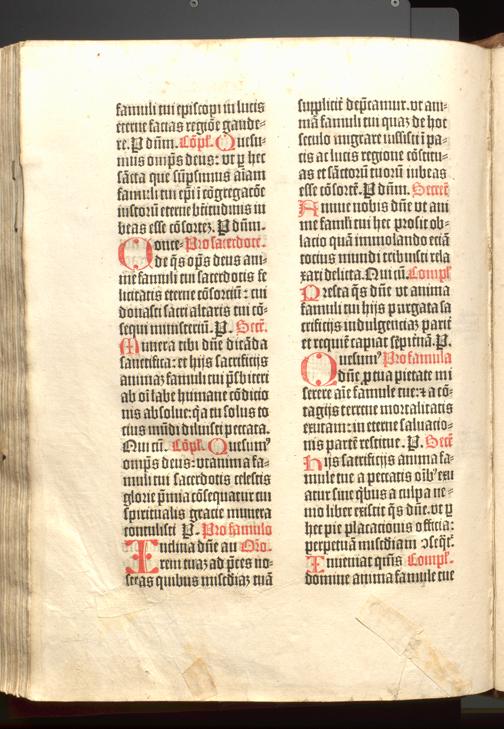 famuli tui episcopi in lucis
eterne facias regiõe gaude⸗
re. P dñm. Cõpł. Quesu⸗
mus omp̃s deus: vt p hec
sãcta que sũpsimus aĩam
famuli tui ep̃i i cõgregacõe
iustorũ eterne btitudinis iu
beas esse cõsortẽ. P dñm.
Conce⸗ Pro sacerdote.
de q̃s op̃s deus ani⸗
me famuli tui sacerdotis fe
licitatis eterne cõsorciũ: cui
donasti sacri altaris tui cõ⸗
sequi ministeriũ. P. Secr̃.
Munera tibi dñe dicãda
sanctifica: et hijs sacrificijs
animaz famuli tui p̃sbiteri
ab oĩ labe humane cõdicio
nis absolue: q̃a tu solus to
cius mũdi diluisti peccata.
Qui cũ. Cõpł. Quesum9
omp̃s deus: vt anima fa⸗
muli tui sacerdotis celestis
glorie p̃mia cõsequatur cui
spiritualis gracie munera
contulisti P. Pro famulo
Inclina dñe au Orõ.
rem tuaz ad p̃ces no⸗
stras quibus misc̃diaz tuã
supplicit̃ dep̃camur. vt ani⸗
mã famuli tui quaz de hoc
seculo migrare iussisti i pa⸗
cis ac lucis regione cõstitu⸗
as et sãctorũ tuorũ iubeas
esse cõsortẽ. P dñm. Secret̃
Annue nobis dñe vt ani
me famłi tui hec prosit ob⸗
lacio quã immolando eciã
tocius mundi tribuisti rela
xari delicta. Qui cũ. Compł.
Presta q̃s dñe vt anima
famuli tui hijs purgata sa
crificijs indulgenciaz parit̃
et requiẽ capiat sepitnã. P.
Quesum9 Pro famula
dñe p tua pietate mi
serere aĩe famule tue: ⁊ a cõ⸗
tagijs terrene mortalitatis
exutam: in eterne saluacio⸗
nis partẽ restitue. P. Secr̃
Hijs sacrificijs anima fa⸗
mule tue a peccatis oĩb9 exu
atur sine q̃bus a culpa ne⸗
mo liber existit q̃s dñe. vt p
hec pie placacionis officia:
perpetuã misc̃diam ↄseq̃t̃.
Inueniat q̃m̃s Compł.
domine anima famule tue